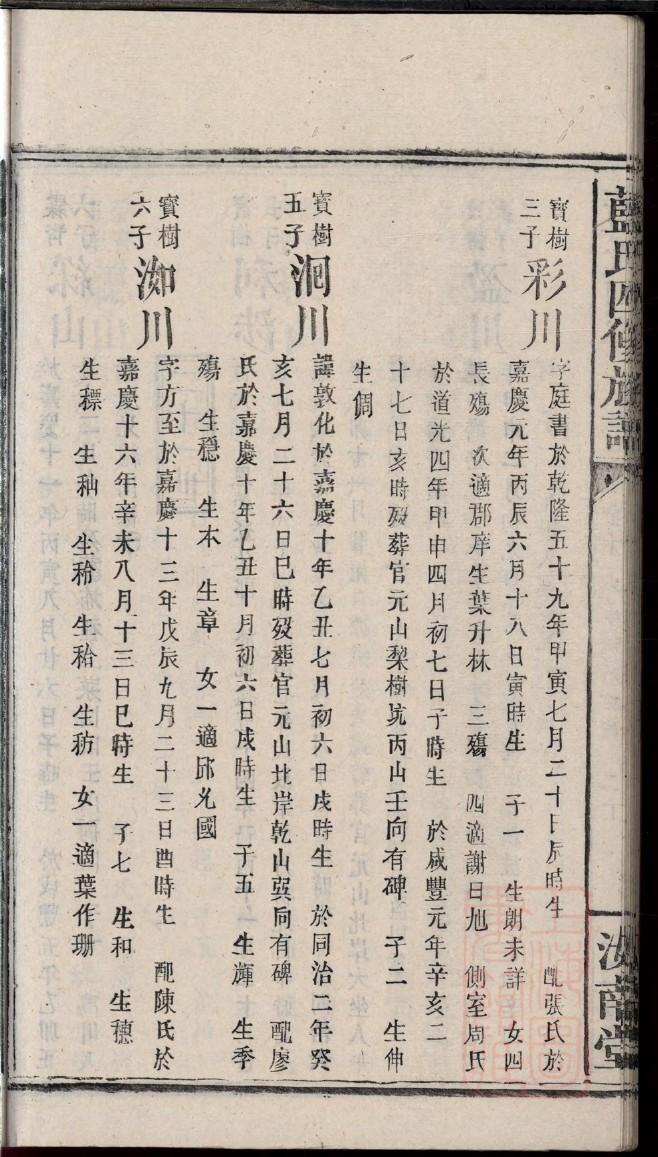 藍氏四修族譜
汝南堂
寶樹三子 彩川
字庭書於乾隆五十九年甲寅七月二十日辰時生 配張氏於
嘉慶元年丙辰六月十八日寅時生 子一 生朗未詳 女四
長殤 次適郡庠生葉升林 三殤 四適謝日旭 側室周氏
於道光四年甲申四月初七日子時生 於咸豐元年辛亥二
十七日亥時歿葬官元山梨樹坑丙山壬向有碑 子二 生伸
生倜
寶樹五子 泂川
諱敦化於嘉慶十年乙丑七月初六日戌時生 於同治二年癸
亥七月二十六日巳時歿葬官元山北岸乾山巽向有碑 配廖
氏於嘉慶十年乙丑十月初六日戌時生 子五 生輝 生季
殤 生穩 生本 生章 女一適邱兌國
寶樹六子 洳川
字方至於嘉慶十三年戊辰九月二十三日酉時生 配陳氏於
嘉慶十六年辛未八月十三日巳時生 子七 生和 生穗
生標 生秈 生秢 生秮 生秿 女一適葉作珊